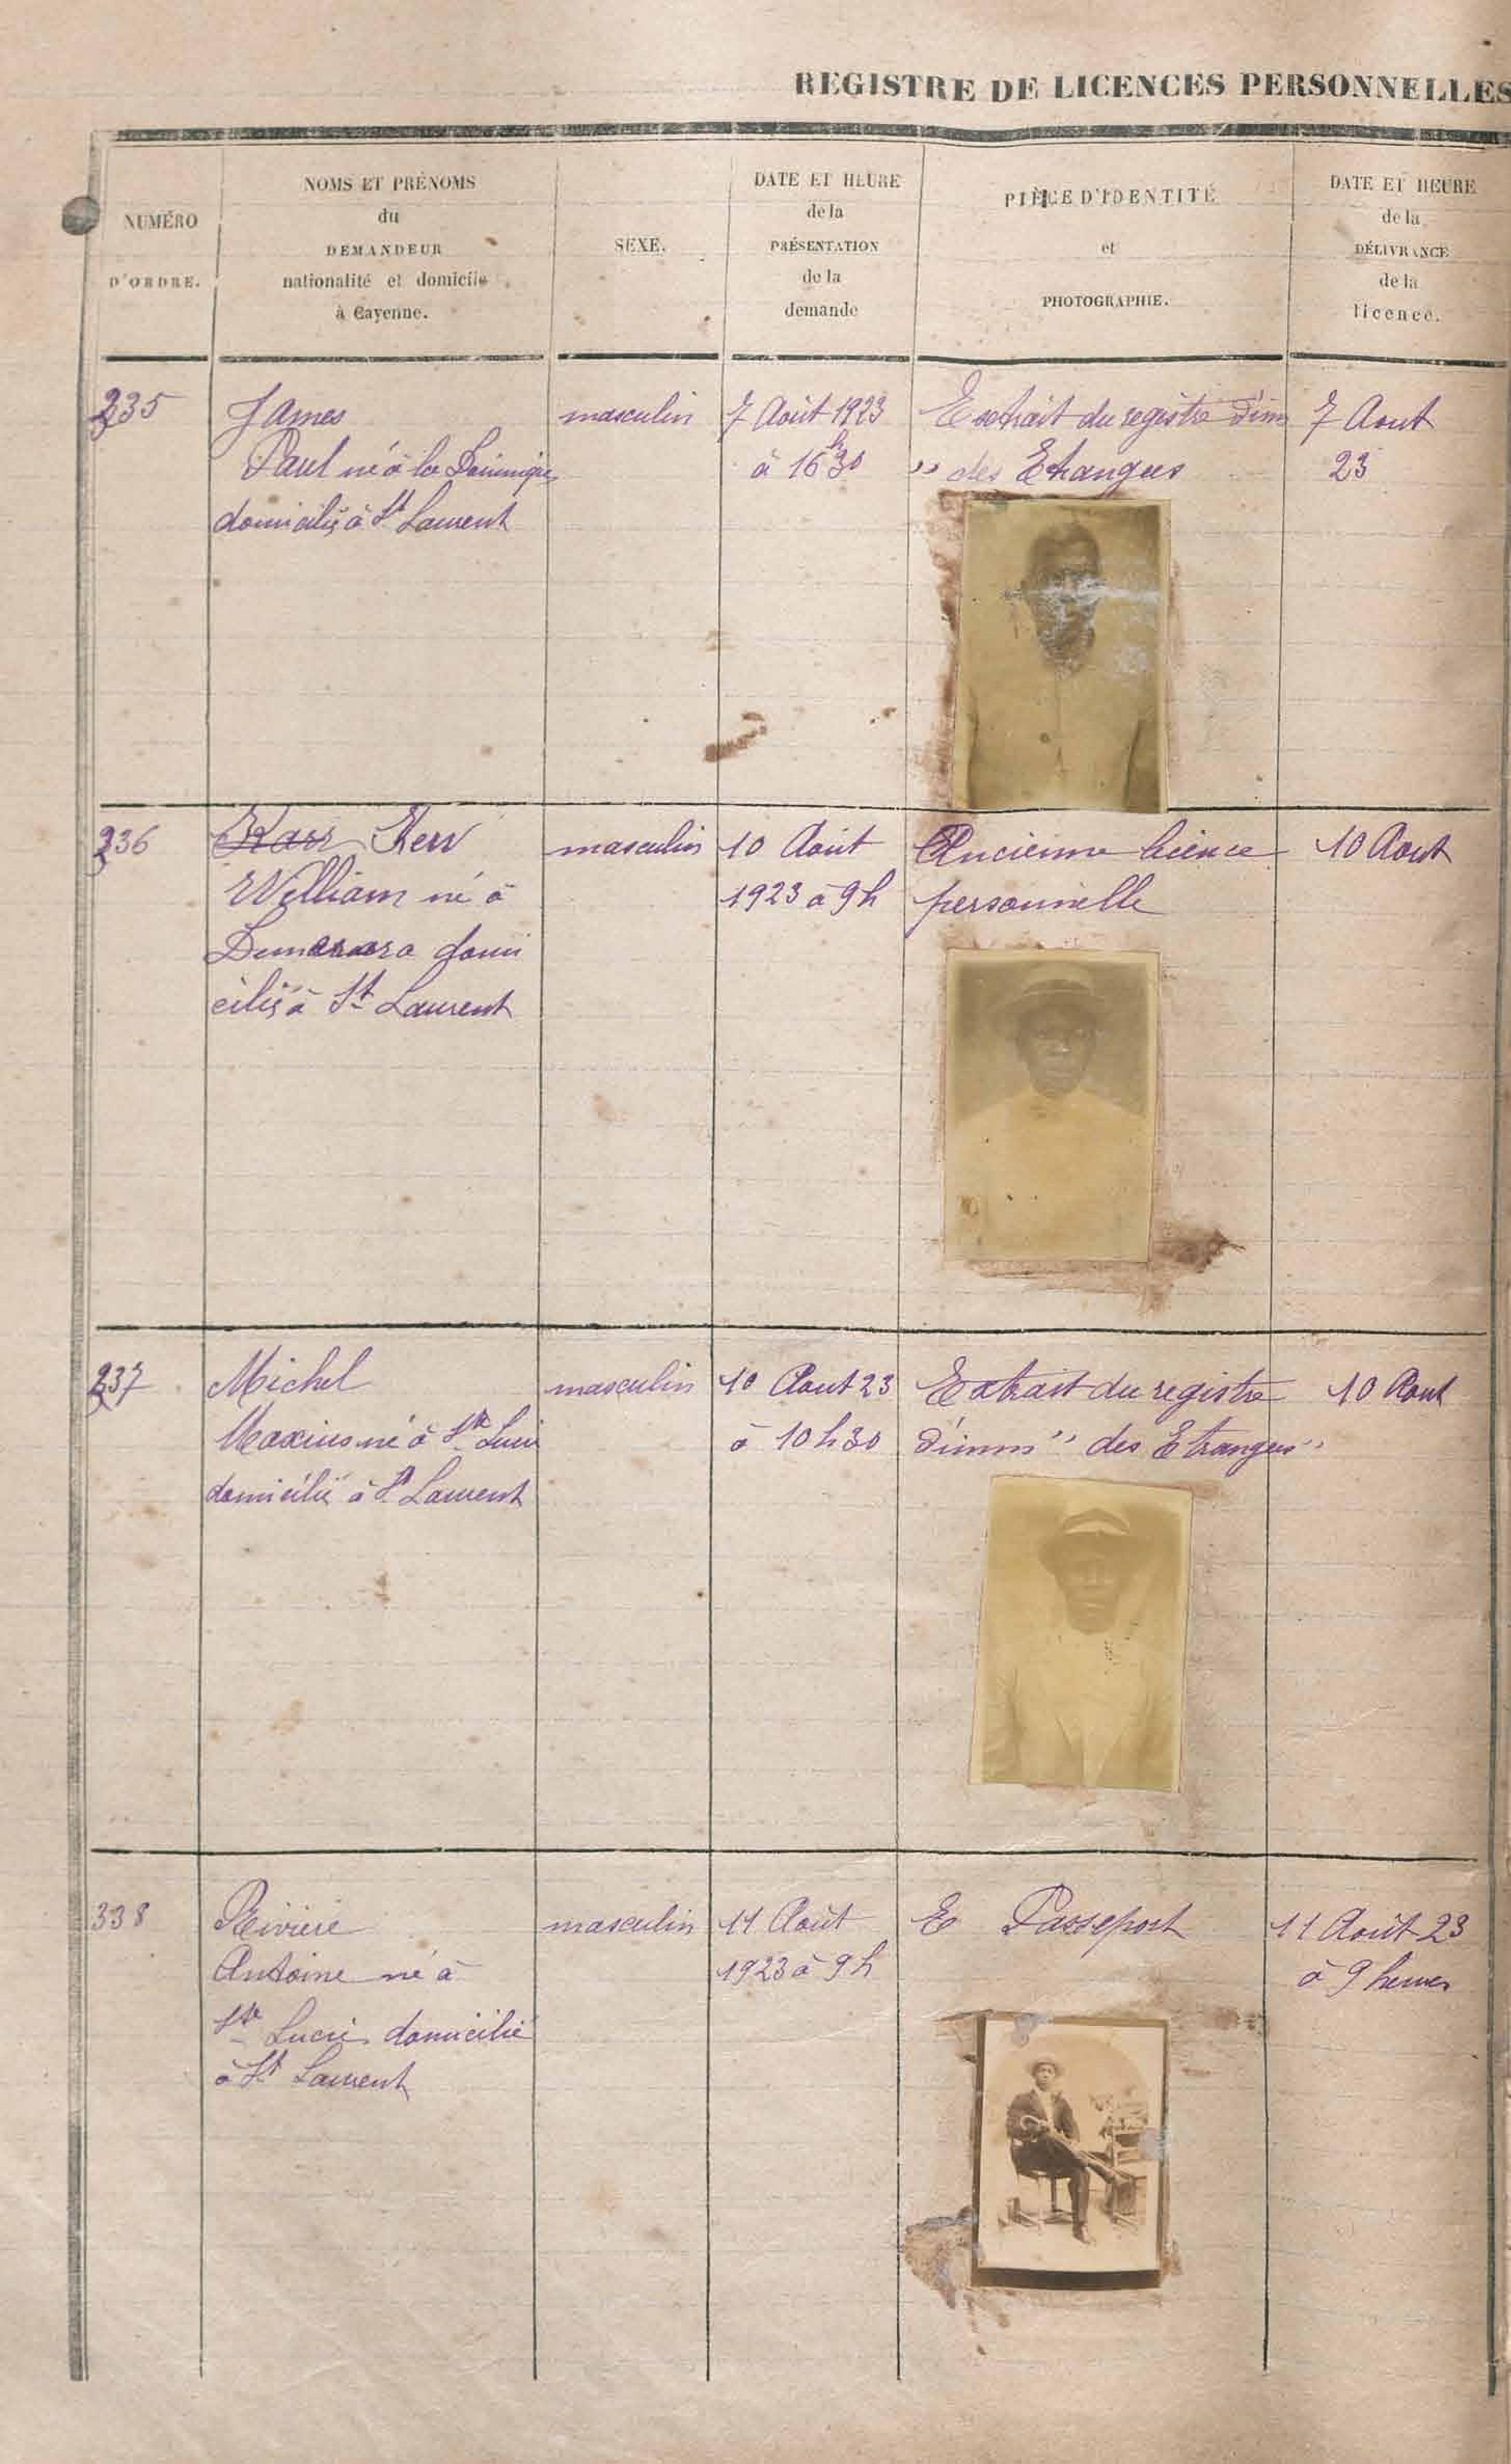 REGISTRE DE LICENCES PERSONNELLES
NUMÉRO
D'ORDRE.
NOMS ET PRÉNOMS
du
DEMANDEUR
nationalité et domicile
à Cayenne.
SEXE.
DATE ET HEURE
de la
PRÉSENTATION
de la
demande
PIÈCE D'IDENTITÉ
et
PHOTOGRAPHIE.
DATE ET HEURE
de la
DÉLIVRANCE
de la
licence.
335
James
Paul né à la Dominique
domicilié à St Laurent
masculin
7 Août 1923
à 16h30
Extrait du registre d'im
" des Etrangers
7 Aout
23
336
Karr Kerr
William né à
Demerara domi
cilié à St Laurent
masculin
10 Août
1923 à 9h
Ancienne licence
personnelle
10 Aout
337
Michel
né à Ste Lucie
domicilié à St Laurent
masculin
10 Aout 23
à 10h30
Extrait du registre
d'imm" des Etrangers"
10 Aout
338
Riviere
Antoine né à
Ste Lucie domicilié
à St Laurent
masculin
11 Août
1923 à 9h
E Passeport
11 Août 23
à 9 heures